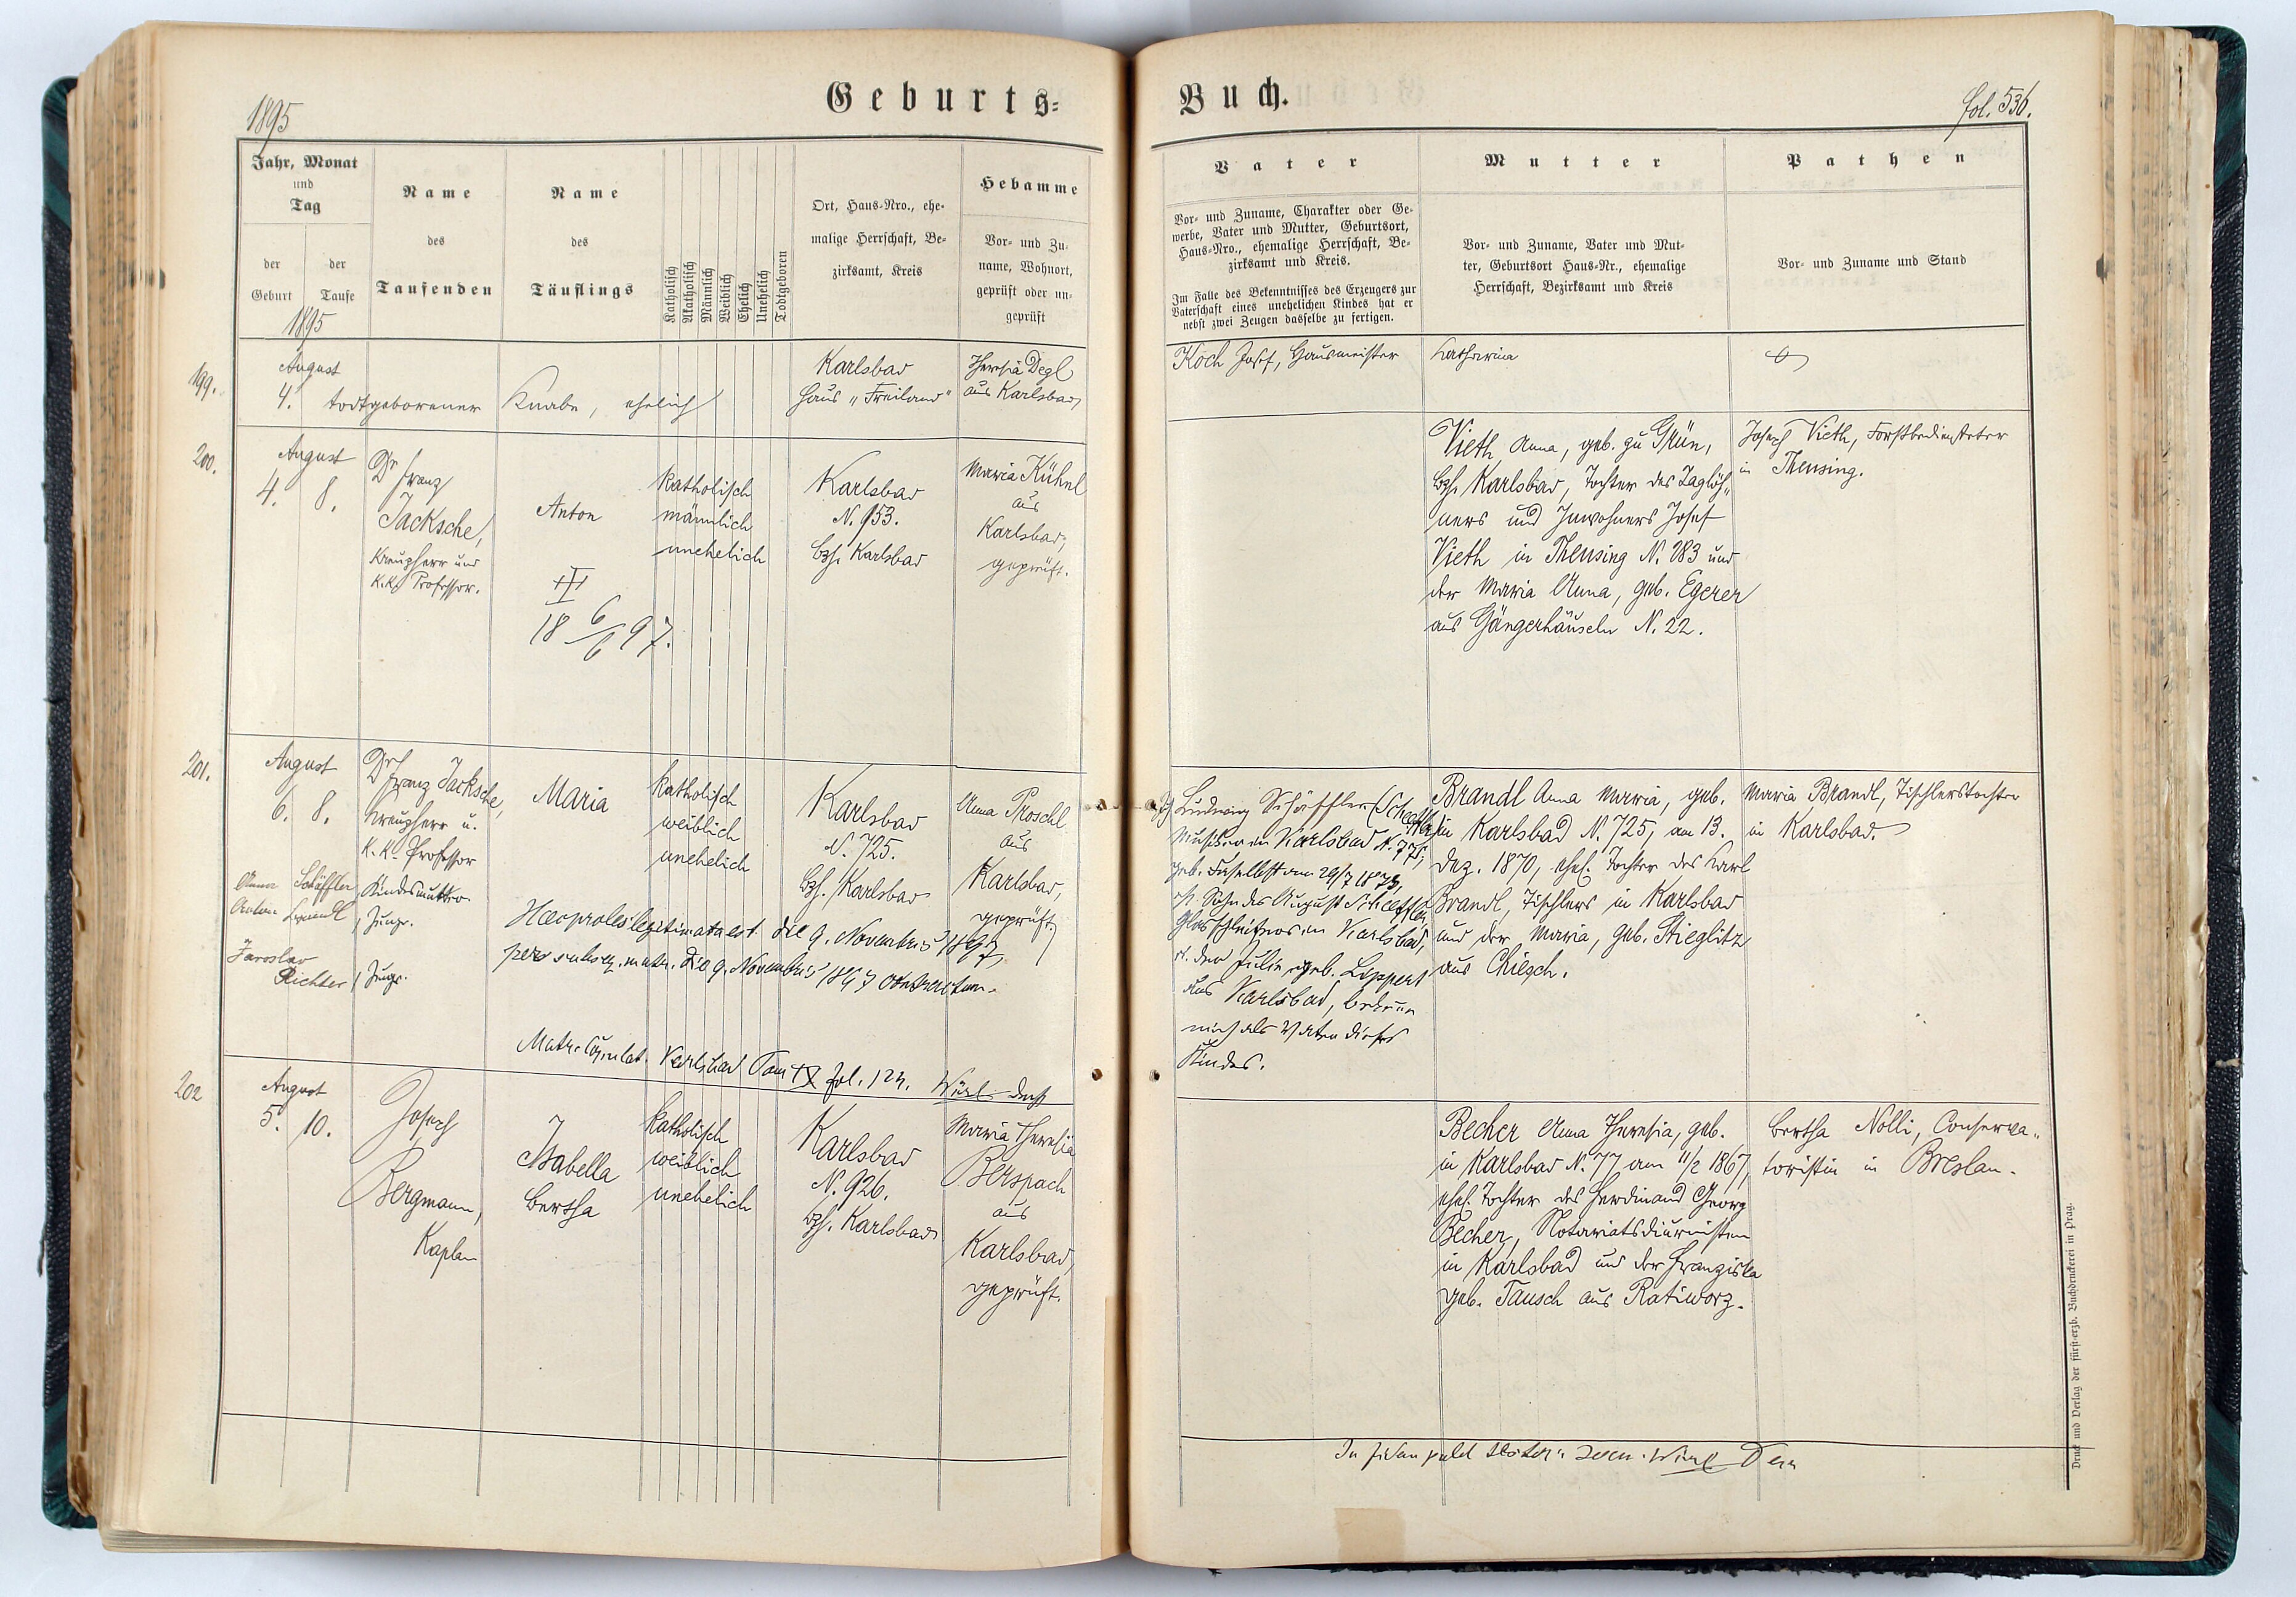 1895
Geburts-
Buch.
fol. 536.
Jahr, Monat
und
Tag
der
Geburt
der
Taufe
1895
Name
des
Taufenden
Name
des
Täuflings
Katholisch
Akatholisch
Männlich
Weiblich
Ehelich
Unehelich
Todtgeboren
Ort, Haus-Nro., ehe-
malige Herrschaft, Be-
zirksamt, Kreis
Hebamme
Vor- und Zu-
name, Wohnort,
geprüft oder un-
geprüft
Vater
Vor- und Zuname, Charakter oder Ge-
werbe, Vater und Mutter, Geburtsort,
Haus-Nro., ehemalige Herrschaft, Be-
zirksamt und Kreis.
Im Falle des Bekenntnisses des Erzeugers zur
Vaterschaft eines unehelichen Kindes hat er
nebst zwei Zeugen dasselbe zu fertigen.
Mutter
Vor- und Zuname, Vater und Mut-
ter, Geburtsort Haus-Nr., ehemalige
Herrschaft, Bezirksamt und Kreis
Pathen
Vor- und Zuname und Stand
199.
August
4. todtgeborener Knabe, ehelich
Karlsbad
Haus "Freiland"
Theresia Degl
aus Karlsbad
Koch Josef, Hausmeister
Katharina
200.
August
4. 8.
Dr Franz
Jacksche,
Kreuzherr und
k. k. Professor.
Anton
18 6/6 97.
katholisch
männlich
unehelich
Karlsbad
N. 953.
Bzh. Karlsbad
Maria Kühnl
aus
Karlsbad,
geprüft.
Vieth Anna, geb. zu Grün,
Bzh. Karlsbad, Tochter des Taglöh-
ners und Inwohners Josef
Vieth in Theusing N. 283 und
der Maria Anna, geb. Egerer
aus Gängerhäuseln N. 22.
Joseph Vieth, Forstbediensteter
in Theusing.
201.
August
6. 8.
Dr Franz Jacksche,
Kreuzherr u.
k. k. Professor
Anna Schäffler, Kindesmutter
Anton Brandl, Zeuge.
Jaroslav
Richter, Zeuge.
Maria
katholisch
weiblich
unehelich
Karlsbad
N. 725.
Bzh. Karlsbad
Anna Proschl
aus
Karlsbad,
geprüft
Haec proles legitimata est die 9. Novembris 1897,
per subseq. matr. die 9. Novembris 1897 contractum.
Matr. Copulat. Karlsbad Tom IX fol. 124.
Ludwig Schäffler
Musiker in Karlsbad N. 775,
geb. daselbst am 29/7 1873,
eh. Sohn des August Schäffler,
Glasschleifers in Karlsbad,
u. der Julie geb. Lippert
aus Karlsbad, bekenne
mich als Vater dieses
Kindes.
Brandl Anna Maria, geb.
in Karlsbad N. 725, am 13.
Dez. 1870, ehel. Tochter des Karl
Brandl, Tischlers in Karlsbad
und der Maria, geb. Stieglitz
aus Chiesch.
Maria Brandl, Tischlerstochter
in Karlsbad.
202
August
5. 10.
Joseph
Bergmann,
Kaplan
Isabella
Bertha
katholisch
weiblich
unehelich
Karlsbad
N. 926.
Bzh. Karlsbad
Maria Theresia
Berspach
aus
Karlsbad,
geprüft.
Becher Anna Theresia, geb.
in Karlsbad N. 77, am 11/2 1867,
ehel. Tochter des Ferdinand Georg
Becher, Notariatsdiurnisten
in Karlsbad und der Franziska
geb. Tausch aus Ratiworz.
Bertha Nolli, Conserva-
toristin in Breslau.
Druck und Verlag der fürst-erzb. Buchdruckerei in Prag.